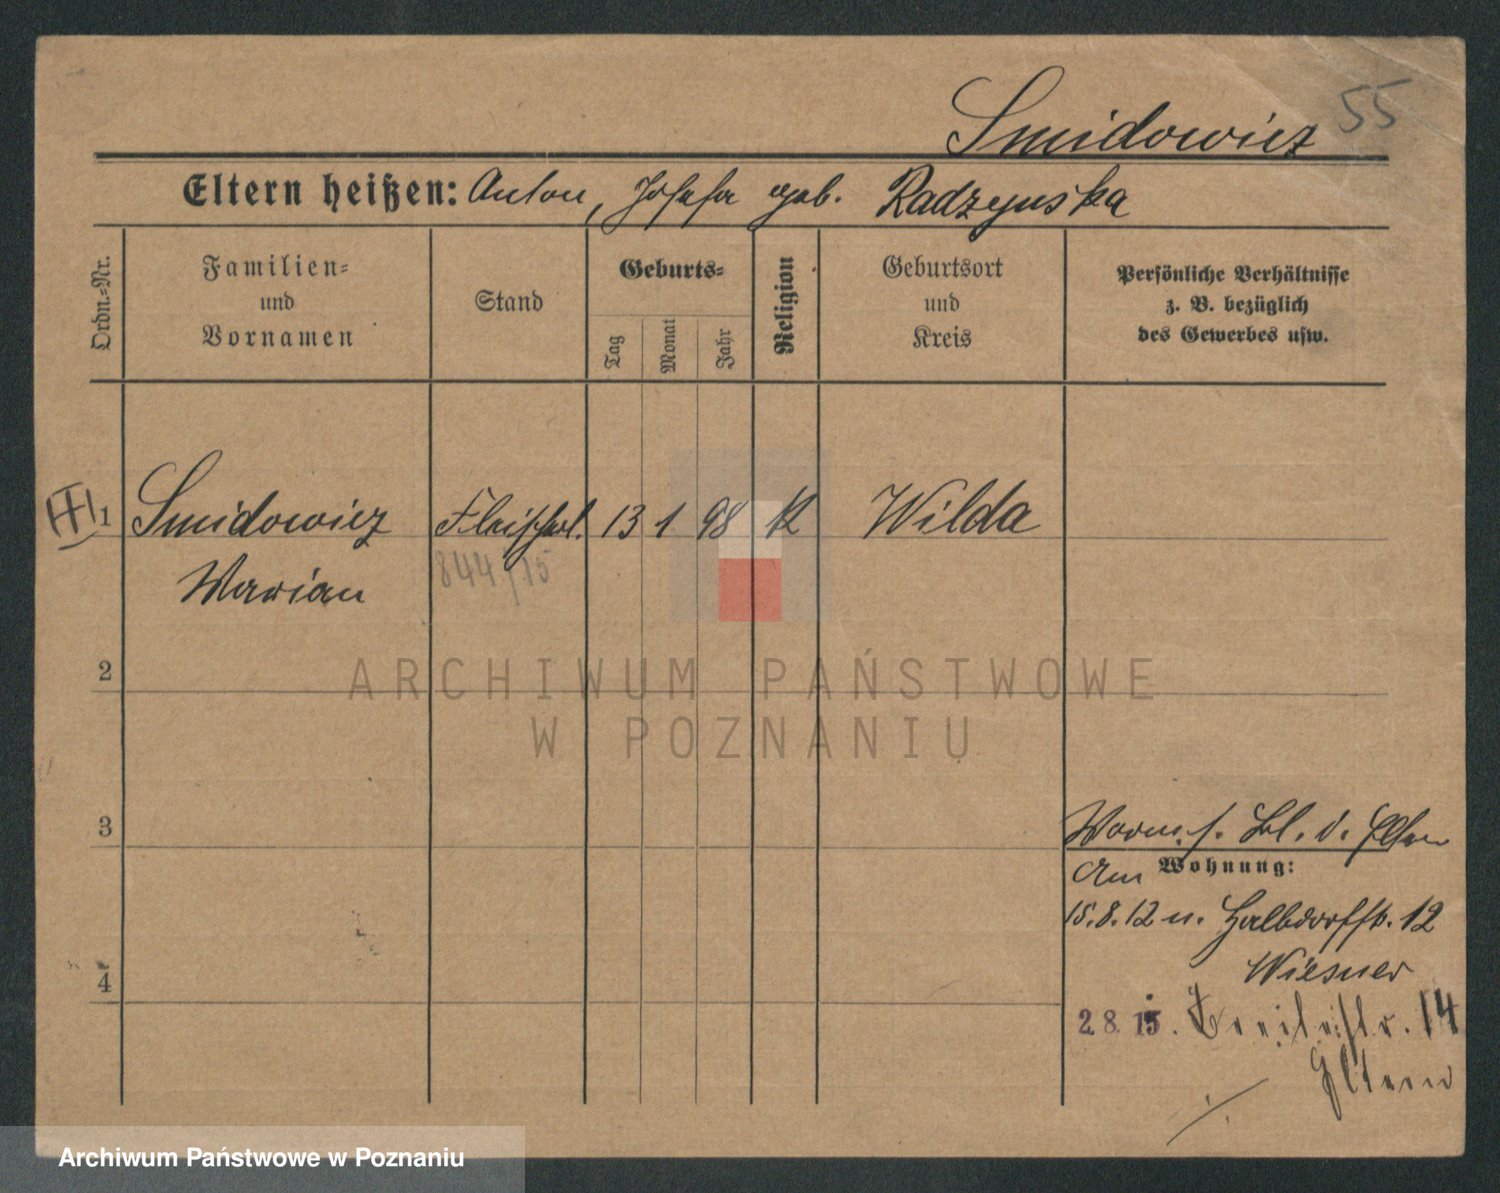 55
Smidowicz
Eltern heißen: Anton, Josefa geb. Radzynska
Ordn.-Nr.
Familien-
und
Vornamen
Stand
Geburts-
Tag
Monat
Jahr
Religion
Geburtsort
und
Kreis
Persönliche Verhältnisse
z. B. bezüglich
des Gewerbes usw.
1 Smidowicz Fleischerl. 13 1 98 K Wilda
Marian
844/15
2
3
4
Bl. d. Eltern
Wohnung:
Am
15.8.12 n. Halbdorfstr. 12
Wiesner
2.8.15. Breitestr. 14
Eltern
ARCHIWUM PAŃSTWOWE
W POZNANIU
Archiwum Państwowe w Poznaniu